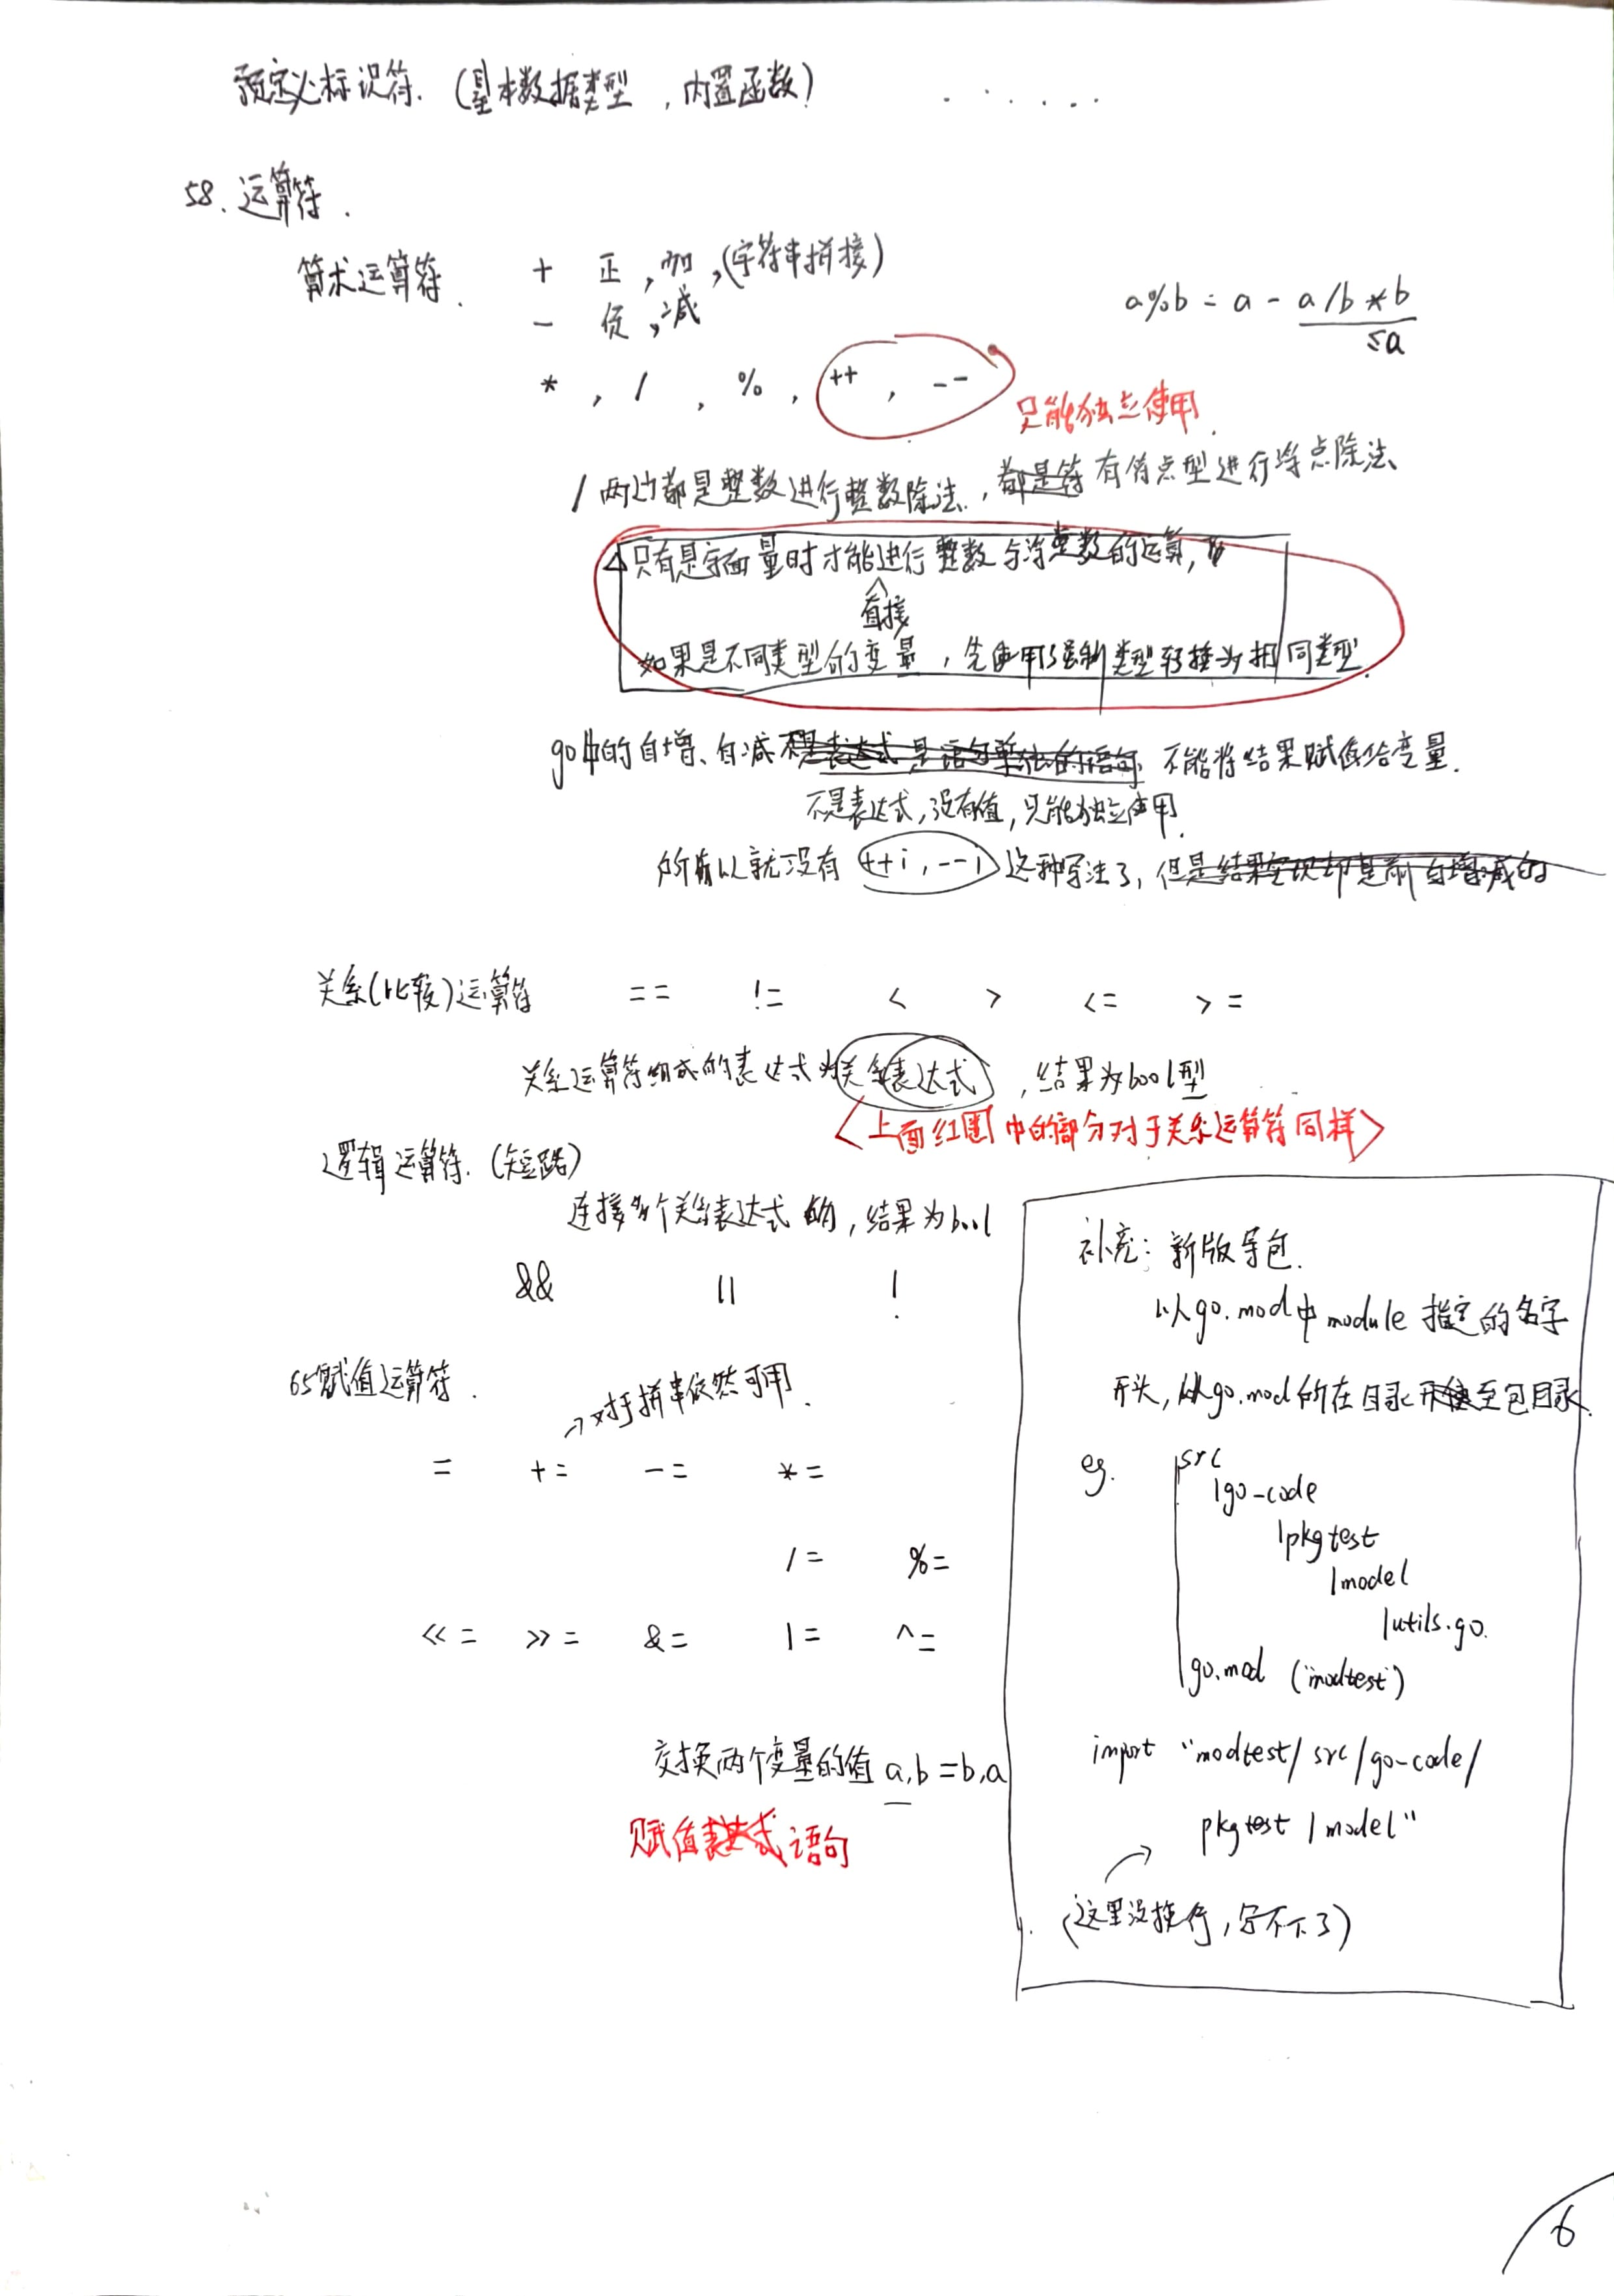 预定义标识符.(基本数据类型,内置函数) ......
58.运算符.
算术运算符. + 正,加,(字符串拼接)
- 负,减
a%b = a - a/b*b
≤a
*, /, %, ++, --
只能独立使用.
/ 两边都是整数进行整数除法, 都是符 有浮点型进行浮点除法
△只有是字面量时才能进行整数与浮点数的运算,
直接
如果是不同类型的变量,先使用强制类型转换为相同类型.
go中的自增、自减 不是表达式 是语句单独的语句 不能将结果赋值给变量.
不是表达式,没有值,只能独立使用.
所以就没有 ++i, --i 这种写法了, 但是结果实现却是前自增减的
关系(比较)运算符 == != < > <= >=
关系运算符组成的表达式为关系表达式,结果为bool型
<上面红圈中的部分对于关系运算符同样>
逻辑运算符.(短路)
连接多个关系表达式的,结果为bool
&& || !
65赋值运算符.
→对于拼串依然可用.
= += -= *=
/= %=
<<= >>= &= |= ^=
交换两个变量的值 a,b=b,a
赋值表达式语句
补充: 新版导包.
以go.mod中module指定的名字
开头,从go.mod所在目录开始至包目录.
eg. src
|go-code
|pkgtest
|model
|utils.go.
go.mod ("modtest")
import "modtest/src/go-code/
pkgtest/model"
(这里没换行,写不下了)
6